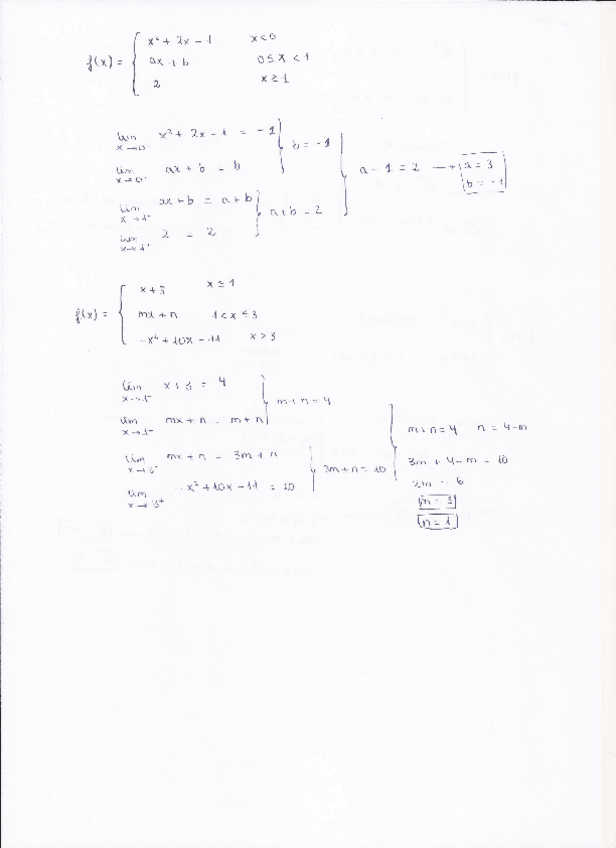 f(x) = { x² + 2x - 1 x < 0
ax + b 0 ≤ x < 1
2 x ≥ 1
lim x→0⁻ x² + 2x - 1 = -1
lim x→0⁺ ax + b = b
b = -1
lim x→1⁻ ax + b = a + b
lim x→1⁺ 2 = 2
a + b = 2
a - 1 = 2 → a = 3
b = -1
f(x) = { x + 3 x ≤ 1
mx + n 1 < x ≤ 3
-x² + 10x - 11 x > 3
lim x→1⁻ x + 3 = 4
lim x→1⁺ mx + n = m + n
m + n = 4
lim x→3⁻ mx + n = 3m + n
lim x→3⁺ -x² + 10x - 11 = 10
3m + n = 10
m + n = 4 n = 4 - m
3m + 4 - m = 10
2m = 6
m = 3
n = 1